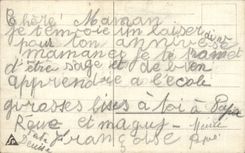 Chère Maman
je t'envoie un baiser
pour ton anniver
maman et je te promet
d'être sage et de bien
apprendre a l'ecole
grosses bises à toi à Papa
et maguy
Françoise